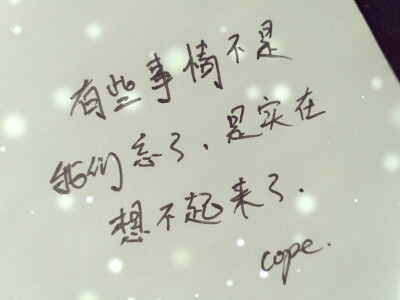 有些事情不是
我们忘了，是实在
想不起来了.
cope.